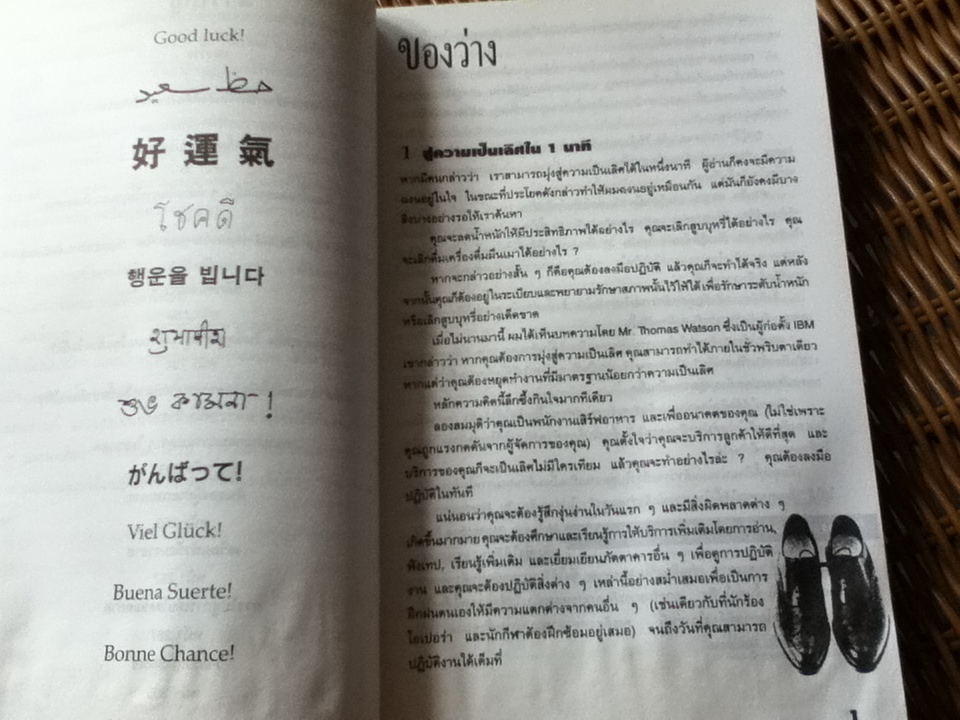 Good luck!
حظ سعيد
好運氣
โชคดี
행운을 빕니다
শুভ কামনা !
がんばって!
Viel Glück!
Buena Suerte!
Bonne Chance!
ของว่าง
1 สู่ความเป็นเลิศใน 1 นาที
หากมีคนกล่าวว่า เราสามารถมุ่งสู่ความเป็นเลิศได้ในหนึ่งนาที ผู้อ่านก็คงจะมีความ
ฉงนอยู่ในใจ ในขณะที่ประโยคดังกล่าวทำให้ผมฉงนอยู่เหมือนกัน แต่มันก็ยังคงมีบาง
สิ่งบางอย่างรอให้เราค้นหา
คุณจะลดน้ำหนักให้มีประสิทธิภาพได้อย่างไร คุณจะเลิกสูบบุหรี่ได้อย่างไร คุณ
จะเลิกดื่มเครื่องดื่มมึนเมาได้อย่างไร ?
หากจะกล่าวอย่างสั้น ๆ ก็คือคุณต้องลงมือปฏิบัติ แล้วคุณก็จะทำได้จริง แต่หลัง
จากนั้นคุณก็ต้องอยู่ในระเบียบและพยายามรักษาสภาพนั้นไว้ให้ได้ เพื่อรักษาระดับน้ำหนัก
หรือเลิกสูบบุหรี่อย่างเด็ดขาด
เมื่อไม่นานมานี้ ผมได้เห็นบทความโดย Mr. Thomas Watson ซึ่งเป็นผู้ก่อตั้ง IBM
เขากล่าวว่า หากคุณต้องการมุ่งสู่ความเป็นเลิศ คุณสามารถทำได้ภายในชั่วพริบตาเดียว
หากแต่ว่าคุณต้องหยุดทำงานที่มีมาตรฐานน้อยกว่าความเป็นเลิศ
หลักความคิดนี้ลึกซึ้งกินใจมากทีเดียว
ลองสมมุติว่าคุณเป็นพนักงานเสิร์ฟอาหาร และเพื่ออนาคตของคุณ (ไม่ใช่เพราะ
คุณถูกแรงกดดันจากผู้จัดการของคุณ) คุณตั้งใจว่าคุณจะบริการลูกค้าให้ดีที่สุด และ
บริการของคุณก็จะเป็นเลิศไม่มีใครเทียม แล้วคุณจะทำอย่างไรล่ะ ? คุณต้องลงมือ
ปฏิบัติในทันที
แน่นอนว่าคุณจะต้องรู้สึกงุ่นง่านในวันแรก ๆ และมีสิ่งผิดพลาดต่าง ๆ
เกิดขึ้นมากมาย คุณจะต้องศึกษาและเรียนรู้การให้บริการเพิ่มเติมโดยการอ่าน,
ฟังเทป, เรียนรู้เพิ่มเติม และเยี่ยมเยียนภัตตาคารอื่น ๆ เพื่อดูการปฏิบัติ
งาน และคุณจะต้องปฏิบัติสิ่งต่าง ๆ เหล่านี้อย่างสม่ำเสมอเพื่อเป็นการ
ฝึกฝนตนเองให้มีความแตกต่างจากคนอื่น ๆ (เช่นเดียวกับที่นักร้อง
โอเปอร่า และนักกีฬาต้องฝึกซ้อมอยู่เสมอ) จนถึงวันที่คุณสามารถ
ปฏิบัติงานได้เต็มที่